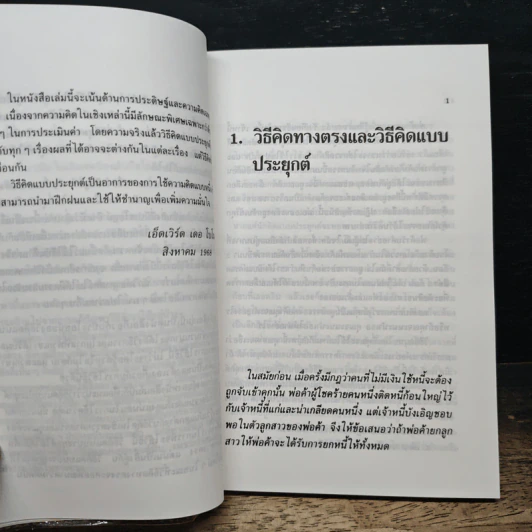 ในหนังสือเล่มนี้จะเน้นด้านการประดิษฐ์และความคิด
เนื่องจากความคิดในเชิงเหล่านี้มีลักษณะพิเศษเฉพาะ
ๆ ในการประเมินค่า โดยความจริงแล้ววิธีคิดแบบประยุกต์
กับทุก ๆ เรื่องผลที่ได้อาจจะต่างกันในแต่ละเรื่อง
อนกัน
วิธีคิดแบบประยุกต์เป็นอาการของการใช้ความคิดแบบ
สามารถนำมาฝึกฝนและใช้ให้ชำนาญเพื่อเพิ่มความมั่นใจ
เอ็ดเวิร์ด เดอ โบโน
สิงหาคม
1
1. วิธีคิดทางตรงและวิธีคิดแบบ
ประยุกต์
ในสมัยก่อน เมื่อครั้งมีกฎว่าคนที่ไม่มีเงินใช้หนี้จะต้อง
ถูกจับเข้าคุกนั้น พ่อค้าผู้โชคร้ายคนหนึ่งติดหนี้ก้อนใหญ่ไว้
กับเจ้าหนี้ที่แก่และน่าเกลียดคนหนึ่ง แต่เจ้าหนี้บังเอิญชอบ
พอในตัวลูกสาวของพ่อค้า จึงให้ข้อเสนอว่าถ้าพ่อค้ายกลูก
สาวให้พ่อค้าจะได้รับการยกหนี้ให้ทั้งหมด